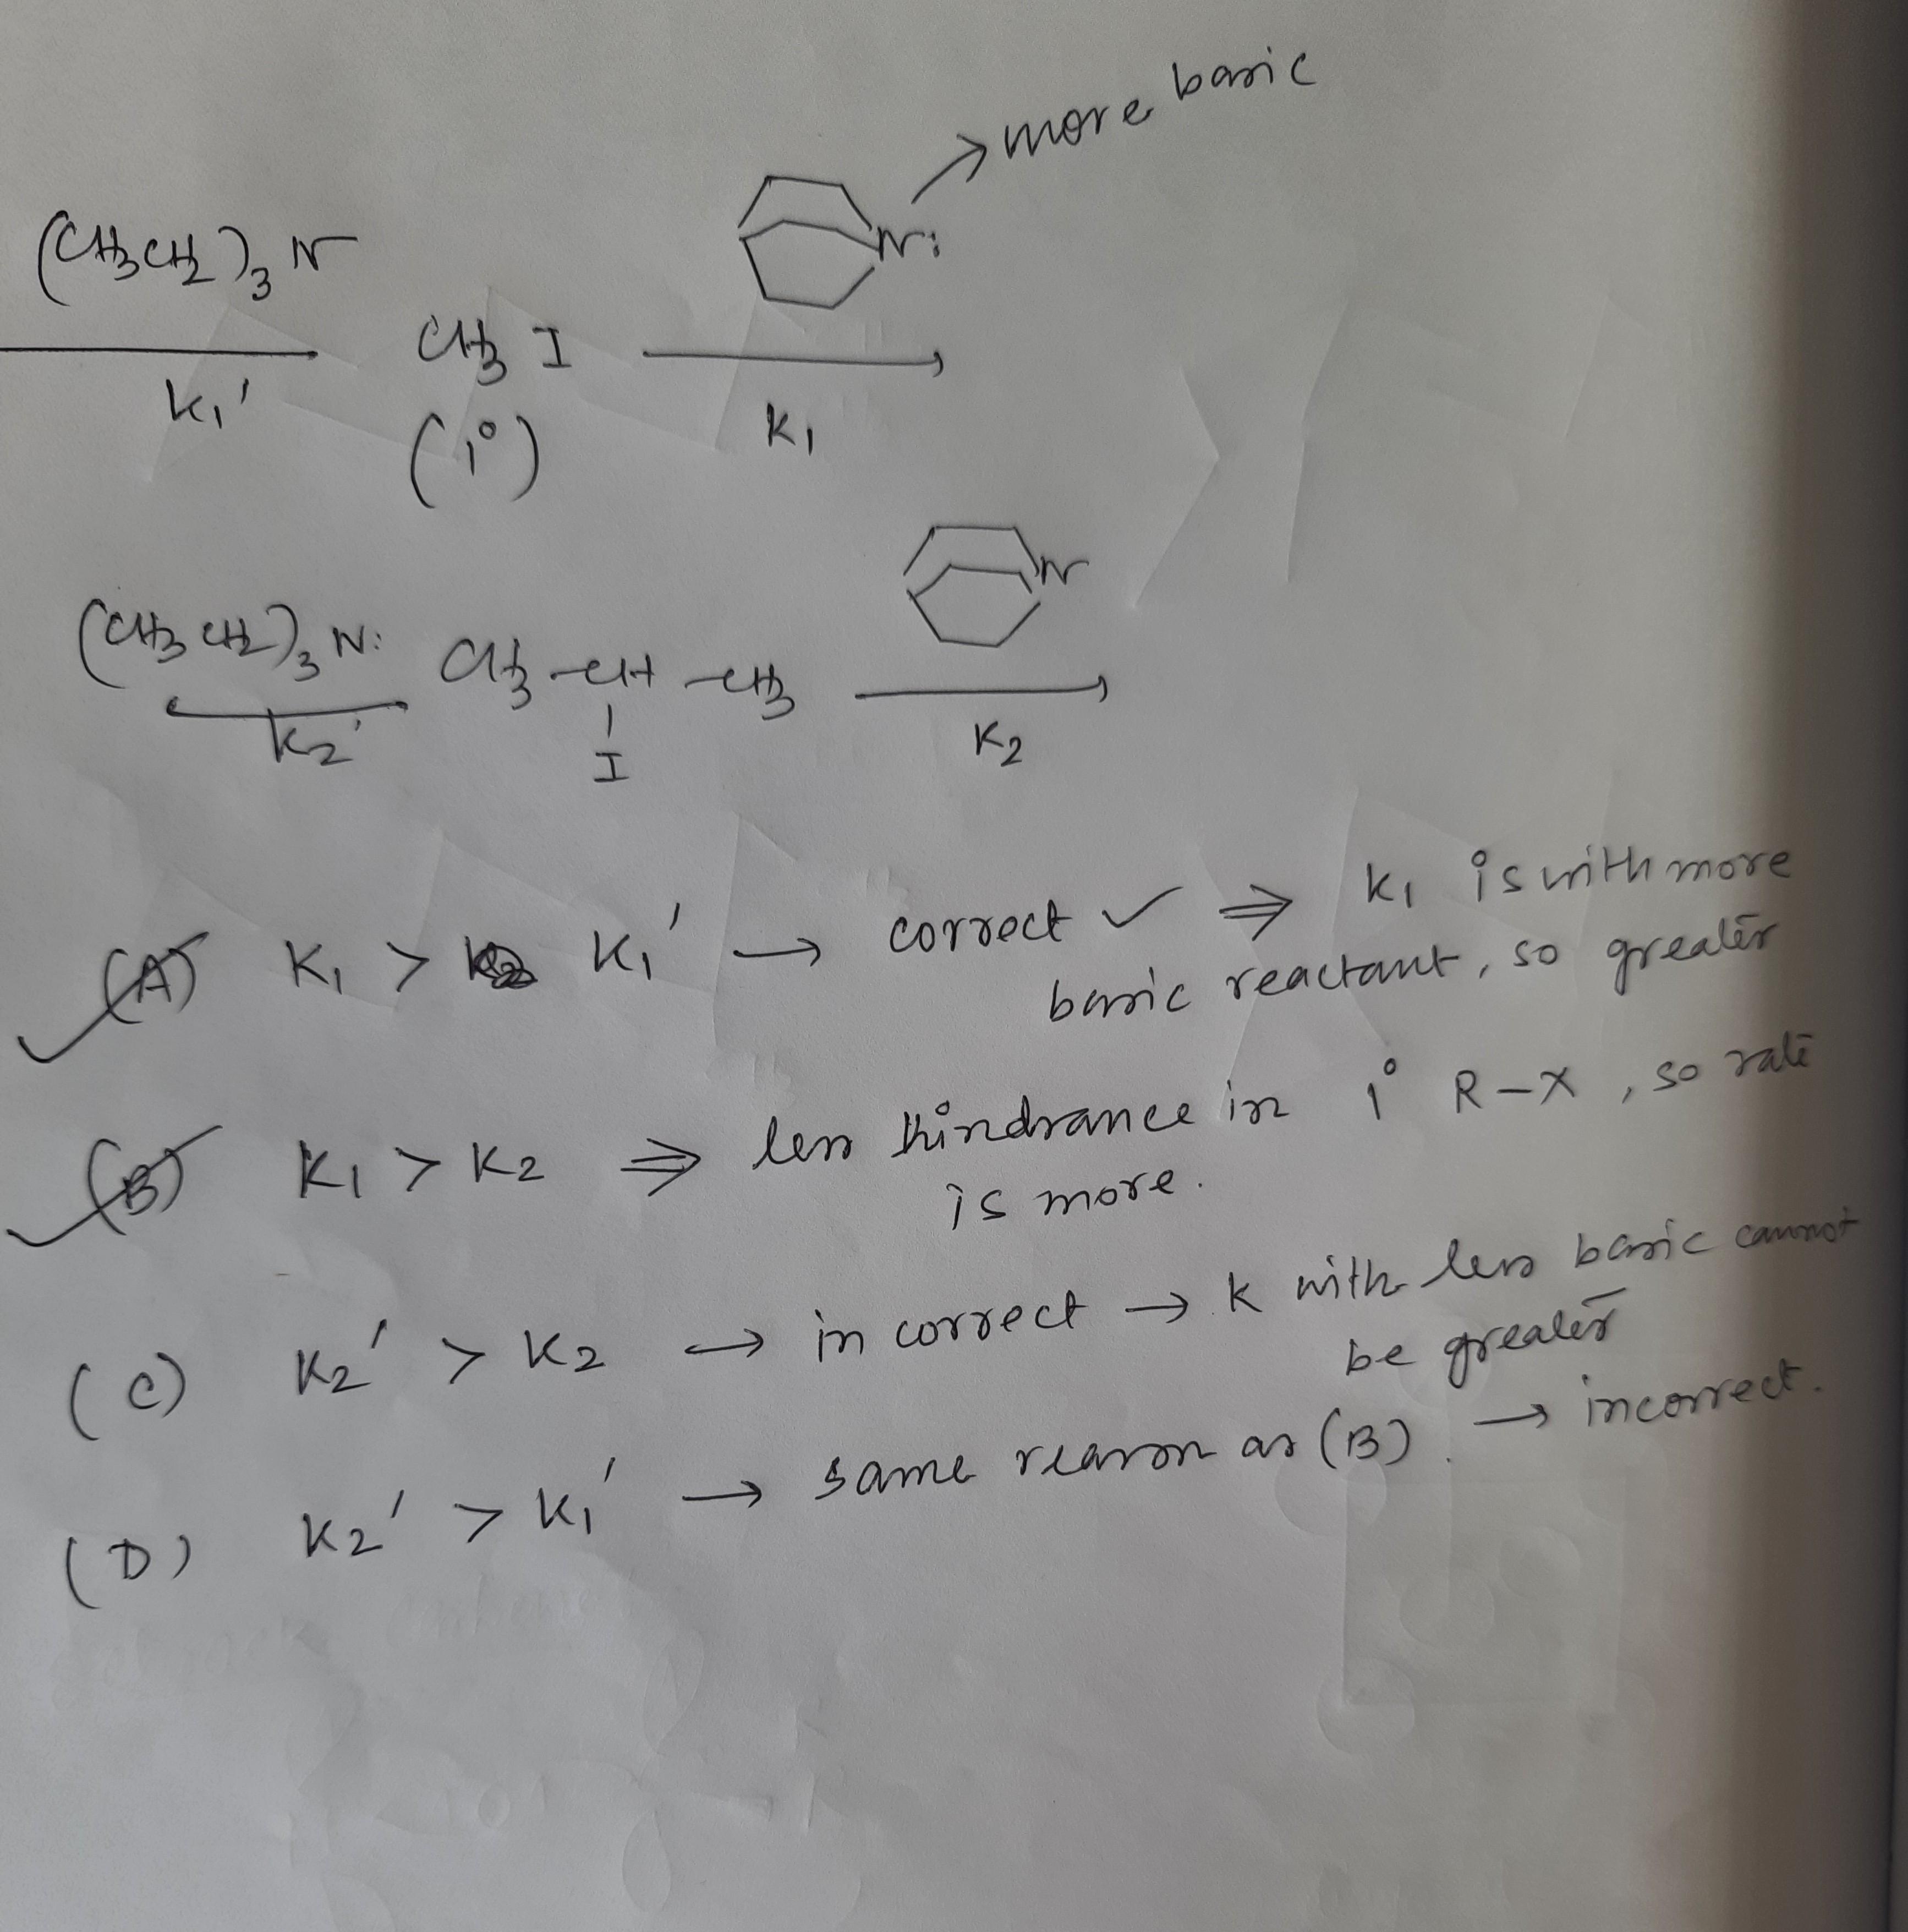 more basic
(CH3CH2)3 N
N:
CH3 I
K1'
(1°)
K1
N
(CH3 CH2)3 N: CH3 -CH -CH3
K2' I K2
(A) K1 > K1' → correct ✓ ⇒ K1 is with more
basic reactant, so greater
(B) K1 > K2 ⇒ less hindrance in 1° R-X, so rate
is more.
(C) K2' > K2 → in correct → K with less basic cannot
be greater
(D) K2' > K1' → same reason as (B). → incorrect.